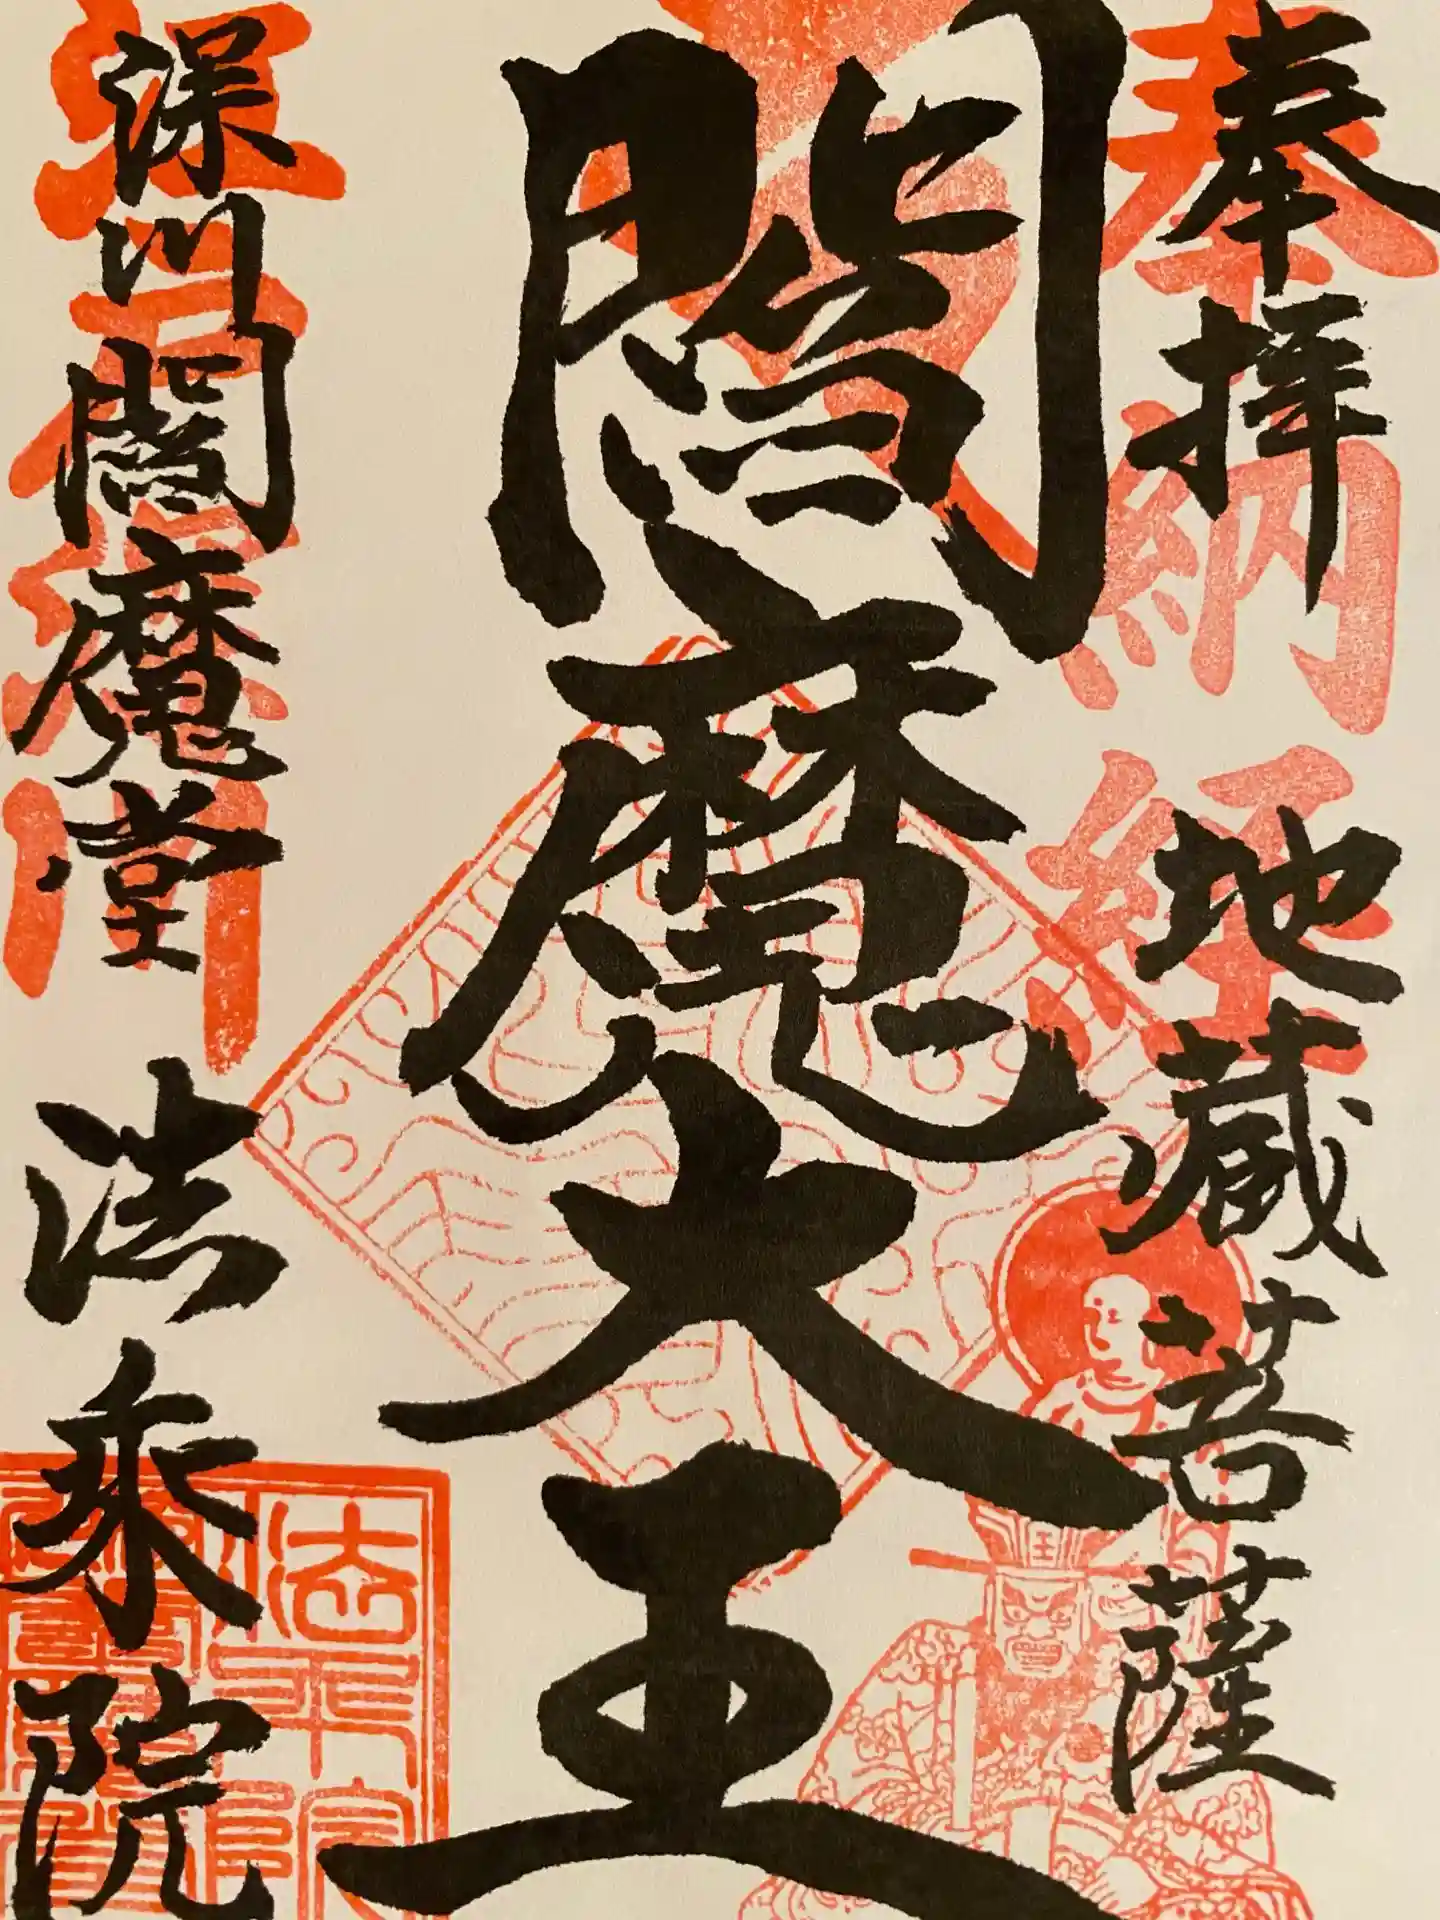 奉拝
地蔵菩薩
奉納経
閻魔大王
王
深川閻魔堂
法乗院
法乗院